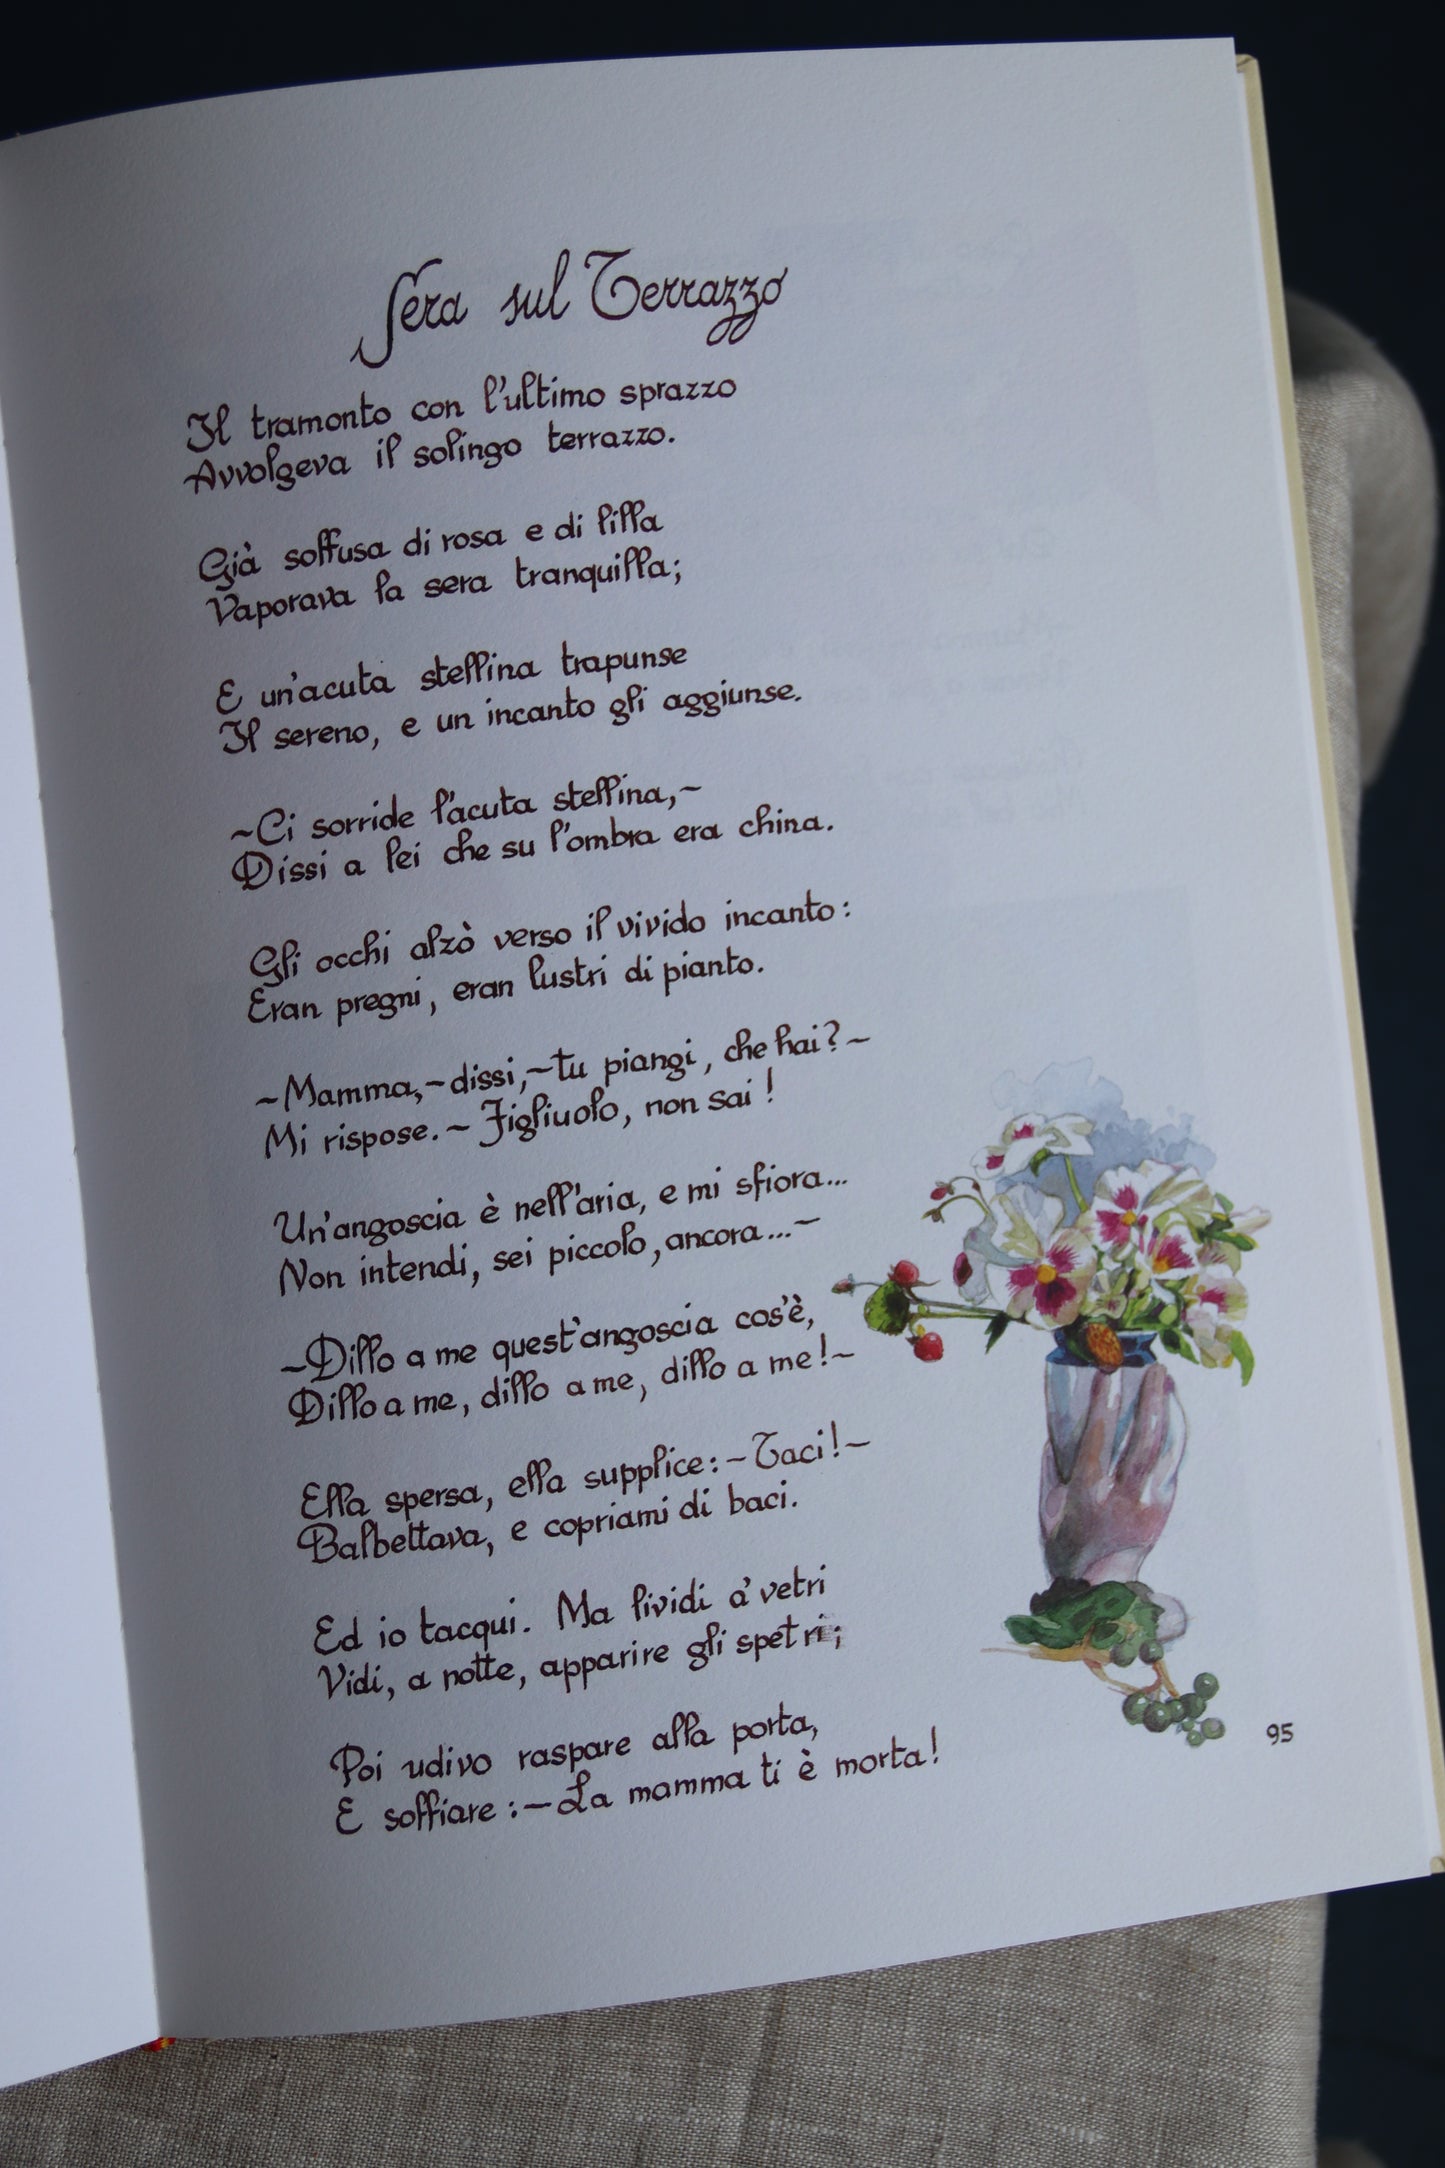 Sera sul Terrazzo
Il tramonto con l'ultimo sprazzo
Avvolgeva il solingo terrazzo.
Già soffusa di rosa e di lilla
Vaporava la sera tranquilla;
E un'acuta stellina trapunse
Il sereno, e un incanto gli aggiunse.
~Ci sorride l'acuta stellina,~
Dissi a lei che su l'ombra era china.
Gli occhi alzò verso il vivido incanto:
Eran pregni, eran lustri di pianto.
~Mamma,~dissi,~tu piangi, che hai?~
Mi rispose.~Figliuolo, non sai!
Un'angoscia è nell'aria, e mi sfiora...
Non intendi, sei piccolo, ancora...~
~Dillo a me quest'angoscia cos'è,
Dillo a me, dillo a me, dillo a me!~
Ella spersa, ella supplice:~Taci!~
Balbettava, e copriami di baci.
Ed io tacqui. Ma lividi a' vetri
Vidi, a notte, apparire gli spetri;
Poi udivo raspare alla porta,
E soffiare:~La mamma ti è morta!
95